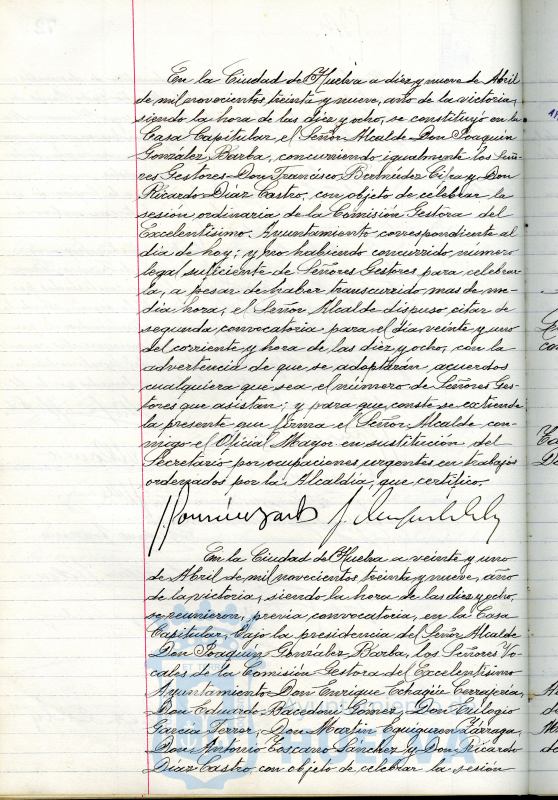 En la Ciudad de Huelva a diez y nueve de Abril
de mil novecientos treinta y nueve, año de la victoria,
siendo la hora de las diez y ocho, se constituyó en la
Casa Capitular, el Señor Alcalde Don Joaquín
González Barba, concurriendo igualmente los Seño-
res Gestores Don Francisco Bermúdez Cifra y Don
Ricardo Díaz Castro, con objeto de celebrar la
sesión ordinaria de la Comisión Gestora del
Excelentísimo Ayuntamiento correspondiente al
día de hoy; y no habiendo concurrido número
legal suficiente de Señores Gestores para celebrar-
la, a pesar de haber transcurrido mas de me-
dia hora, el Señor Alcalde dispuso citar de
segunda convocatoria para el día veinte y uno
del corriente y hora de las diez y ocho, con la
advertencia de que se adoptarán acuerdos
cualquiera que sea el número de Señores Ges-
tores que asistan; y para que conste se extiende
la presente que firma el Señor Alcalde con-
migo el Oficial Mayor en sustitución del
Secretario por ocupaciones urgentes en trabajos
ordenados por la Alcaldía, que certifico.
En la Ciudad de Huelva a veinte y uno
de Abril de mil novecientos treinta y nueve, año
de la victoria, siendo la hora de las diez y ocho,
se reunieron, previa convocatoria, en la Casa
Capitular, bajo la presidencia del Señor Alcalde
Don Joaquín González Barba, los Señores Vo-
cales de la Comisión Gestora del Excelentísimo
Ayuntamiento Don Enrique Echagüe Cerrajería,
Don Eduardo Bacedoni Gómez, Don Eulogio
García Ferror, Don Martín Eguiguren Zárraga,
Don Antonio Toscano Sánchez y Don Ricardo
Díaz Castro, con objeto de celebrar la sesión
HUELVA